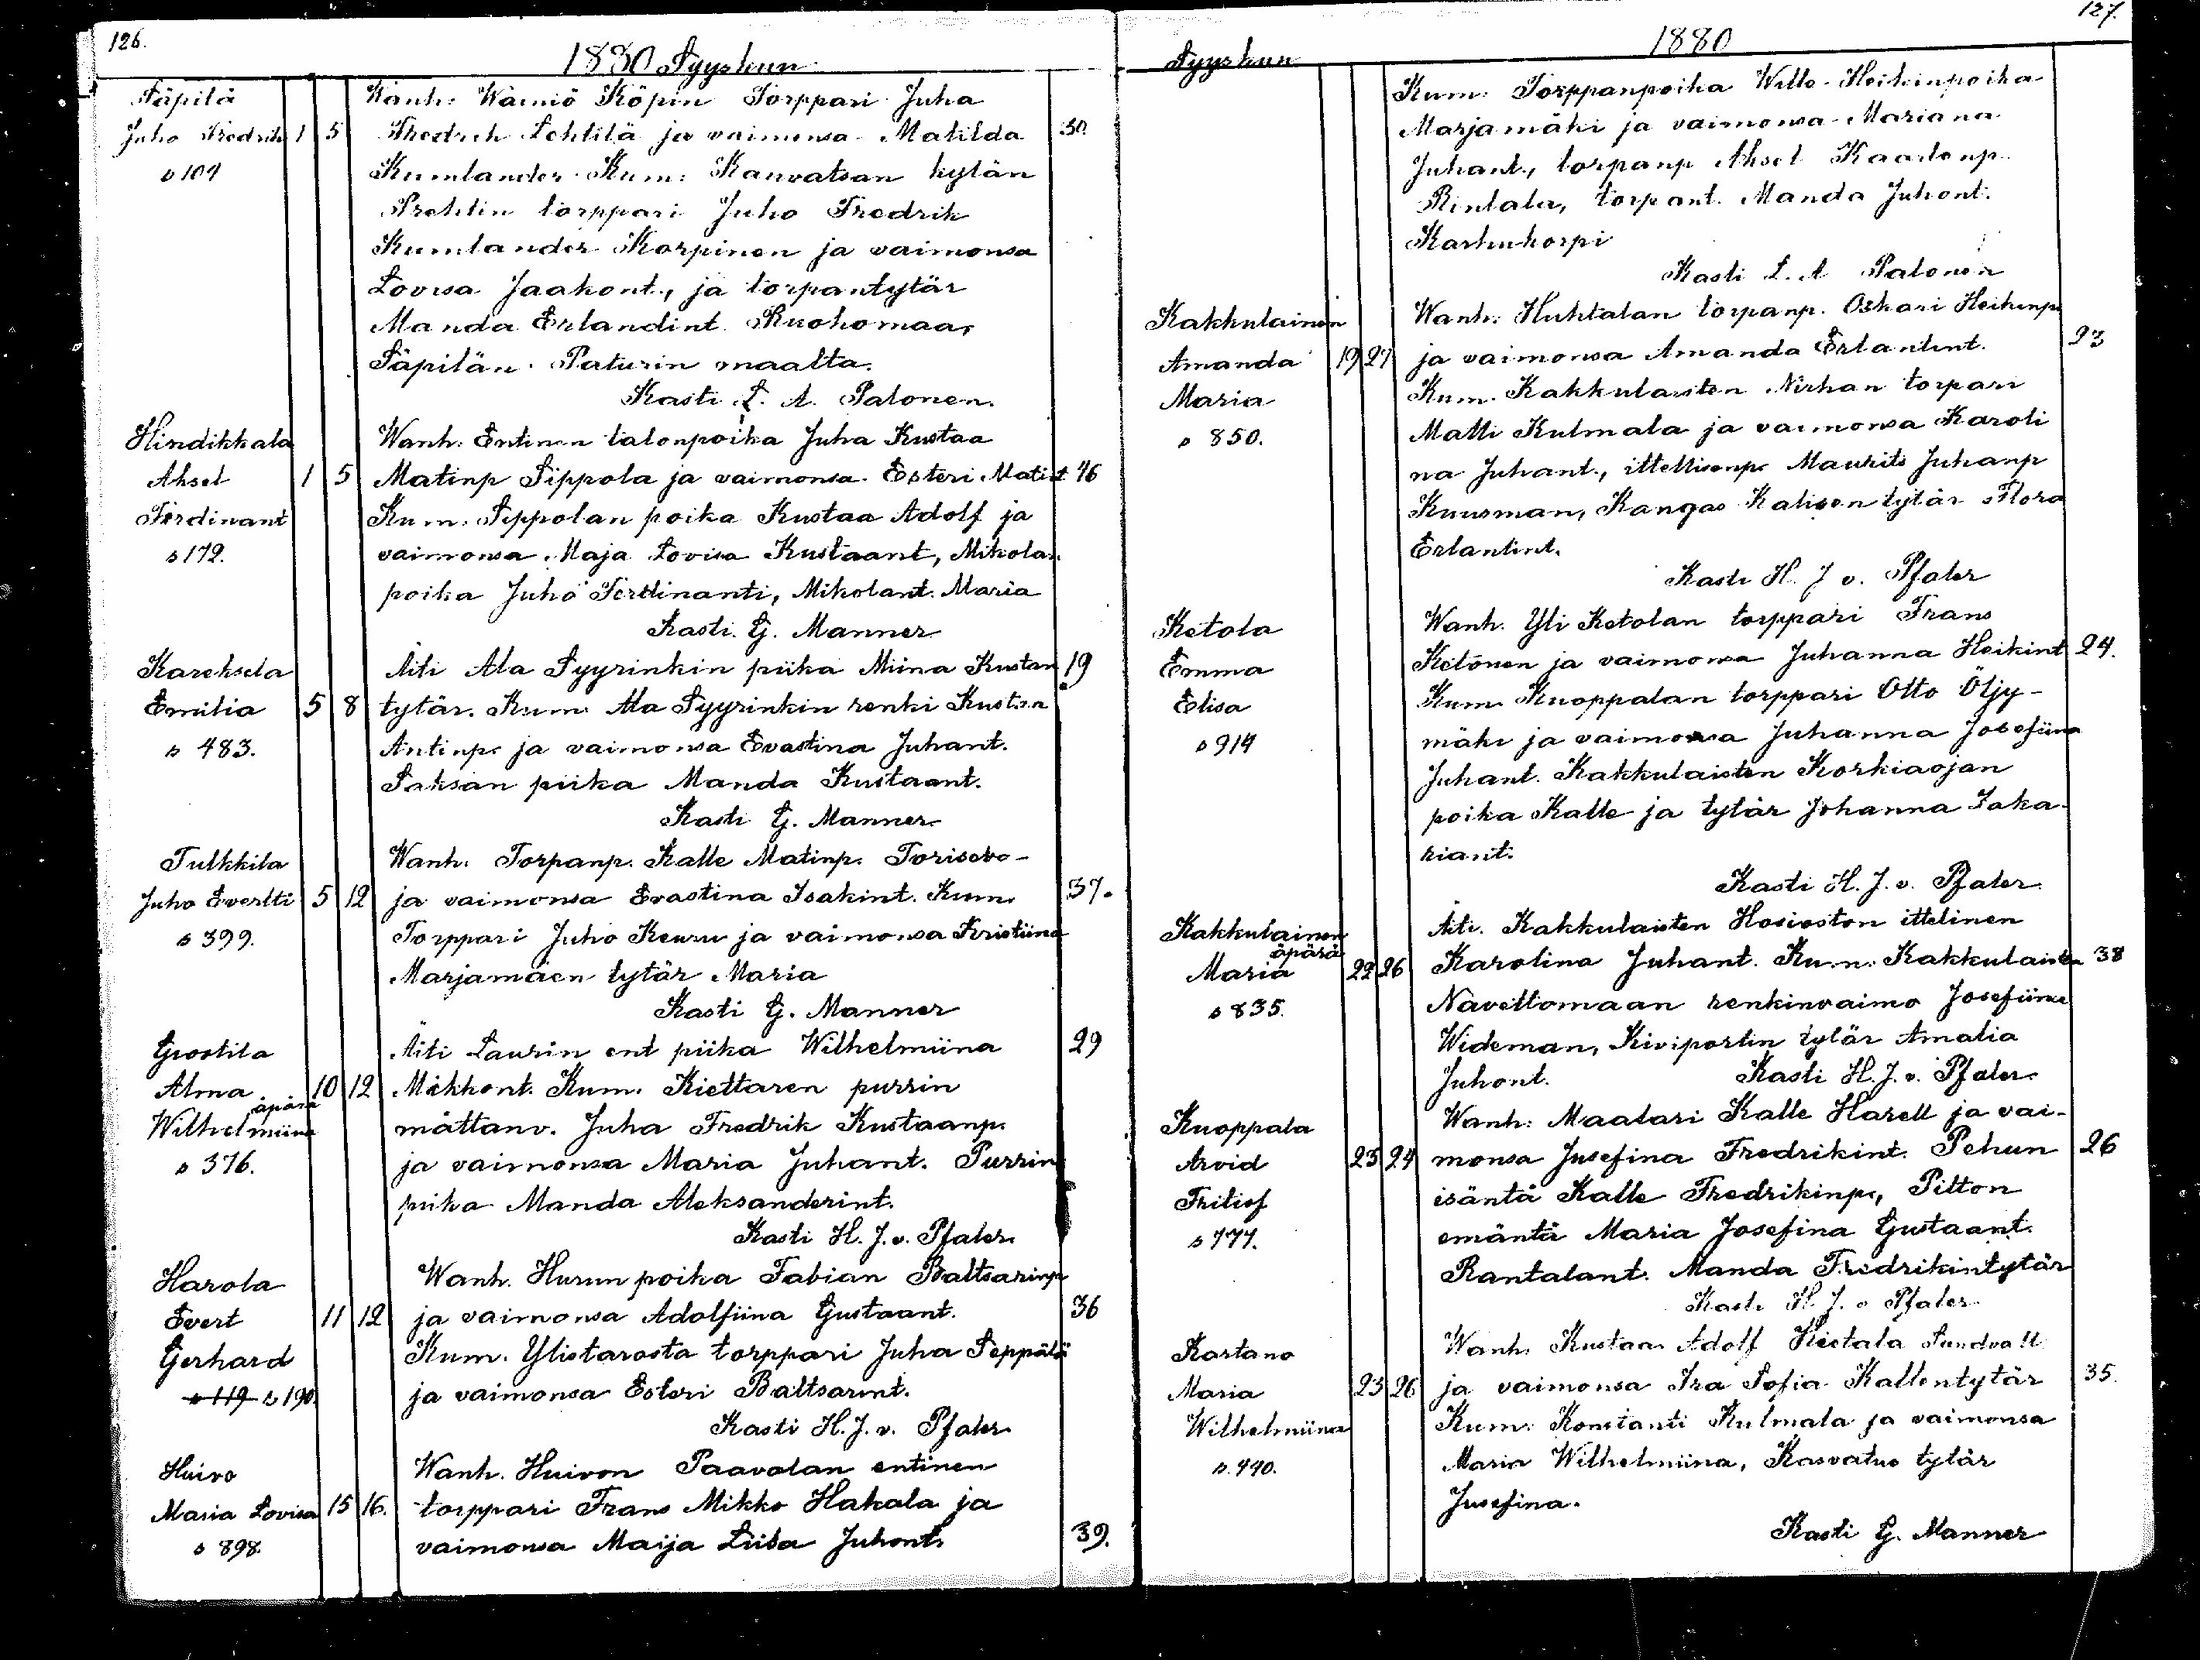 126.
1880 Syyskun
Säpilä
Juho Fredrik 1 5
s 104
Wanh: Wainiö Köpin Torppari Juha
Fredrik Lehtilä ja vaimonsa Matilda 30.
Kumlander. Kum: Kauvatsan kylän
Prehtin torppari Juho Fredrik
Kumlander Korpinen ja vaimonsa
Lovisa Jaakont., ja torpantytär
Manda Erlandint. Ruohomaa,
Säpilän Paturin maalta.
Kasti L. A. Palonen.
Hindikkala
Aksel 1 5
Ferdinant
s 172.
Wanh: Entinen talonpoika Juha Kustaa
Matinp Sippola ja vaimonsa Esteri Matint 46
Kum: Seppolan poika Kustaa Adolf ja
vaimonsa Maja Lovisa Kustaant, Mikolan
poika Juho Ferdinanti, Mikolant. Maria
Kasti. G. Manner
Kareksela
Emilia 5 8
s 483.
Äiti Ala Syyrinkin piika Miina Kustan 19
tytär. Kum. Ala Syyrinkin renki Kustaa
Antinp. ja vaimonsa Evastina Juhant.
Saksan piika Manda Kustaant.
Kasti G. Manner
Tulkkila
Juho Evertti 5 12
s 399.
Wanh: Torpanp. Kalle Matinp. Torisevo-
ja vaimonsa Evastina Isakint. Kum. 37.
Torppari Juho Keuru ja vaimonsa Kristiina
Marjamäen tytär Maria
Kasti G. Manner
Groslila
Alma 10 12
äpärä
Wilhelmiina
s 376.
Äiti Laurin ent piika Wilhelmiina 29
Mikkont. Kum. Kiettaren purrin
mättanv. Juha Fredrik Kustaanp.
ja vaimonsa Maria Juhant. Purrin
piika Manda Aleksanderint.
Kasti H. J. v. Pfaler.
Harola
Evert 11 12
Gerhard
s 119 s 190.
Wanh. Hurun poika Fabian Baltsarinp
ja vaimonsa Adolfiina Gustaant. 36
Kum. Ylistarosta torppari Juha Seppälä
ja vaimonsa Esteri Baltsarint.
Kasti H. J. v. Pfaler
Huivo
Maria Lovisa 15 16.
s 898.
Wanh. Huivon Paavolan entinen
torppari Frans Mikko Hakala ja
vaimonsa Maija Liisa Juhont. 39.
127.
Syyskun 1880
Kum: Torppanpoika Wille Heikinpoika
Marjamäki ja vaimonsa Mariana
Juhant., torpanp Aksel Kaarlonp.
Rintala, torpant. Manda Juhont.
Karhukorpi
Kasti L. A Palonen
Kakkulainen
Amanda 19 27
Maria
s 850.
Wanh: Huhtalan torpanp. Oskari Heikinp
ja vaimonsa Amanda Erlantint. 23
Kum. Kakkulaisten Nirhan torpari
Matti Kulmala ja vaimonsa Karoli
na Juhant., ittellisenp. Maurits Juhanp
Kuusman, Kangas Kalisen tytär Flora
Erlantint.
Kasti H. J v. Pfaler
Ketola
Emma
Elisa
s 914
Wanh. Yli Ketolan torppari Frans
Ketonen ja vaimonsa Juhanna Heikint 24.
Kum Kuoppalan torppari Otto Öljy-
mäki ja vaimonsa Juhanna Josefiina
Juhant. Kakkulaisten Korkiaojan
poika Kalle ja tytär Johanna Saka-
riant.
Kasti H. J. v. Pfaler.
Kakkulainen
äpärä
Maria 22 26
s 835.
Äiti. Kakkulaisten Hosioston ittelinen
Karolina Juhant. Kum. Kakkulaisten 38
Navettomaan renkinvaimo Josefiina
Wideman, Kiviportin tytär Amalia
Juhont. Kasti H. J. v. Pfaler
Kuoppala
Arvid 23 24
Fritiof
s 777.
Wanh: Maalari Kalle Harell ja vai-
monsa Jusefina Fredrikint. Pehun 26
isäntä Kalle Fredrikinp., Pitton
emäntä Maria Josefina Gustaant.
Rantalant. Manda Fredrikintytär
Kasti H J. v Pfaler
Kartano
Maria 23 26
Wilhelmiina
s. 440.
Wanh. Kustaa Adolf Kietala Sundvall
ja vaimonsa Ira Sofia Kallentytär 35.
Kum: Konstanti Kulmala ja vaimonsa
Maria Wilhelmiina, Kasvatus tytär
Jusefina.
Kasti G. Manner